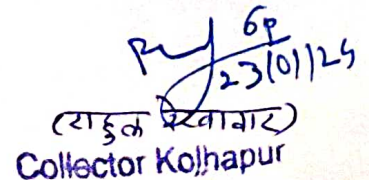 23/01/24
(राहुल रेखावार)
Collector Kolhapur